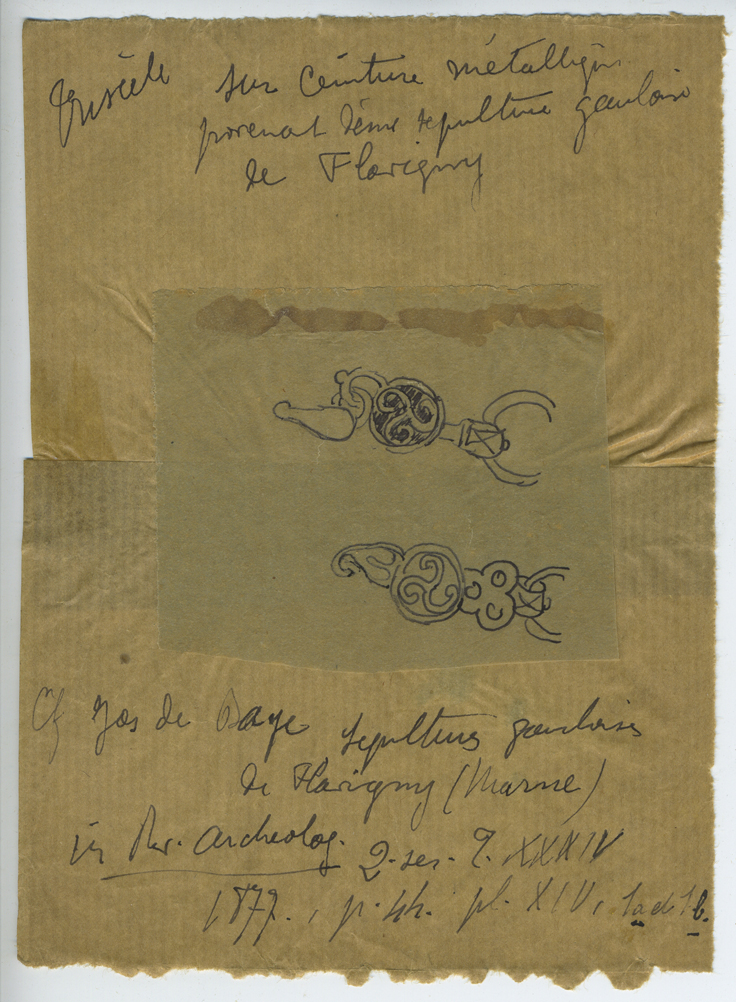 Triscèle sur ceinture métallique
provenant d'une sepulture gauloise
de Flavigny
Cf Jos de Baye sepultures gauloises
de Flavigny (Marne)
in Rev. Archeolog. 2. ser. T. XXXIV
1877. , p. 44. pl. XIV, 1a et 1b.